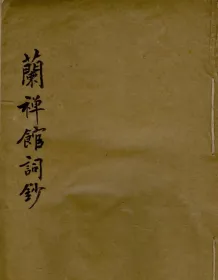 蘭禅館詞鈔